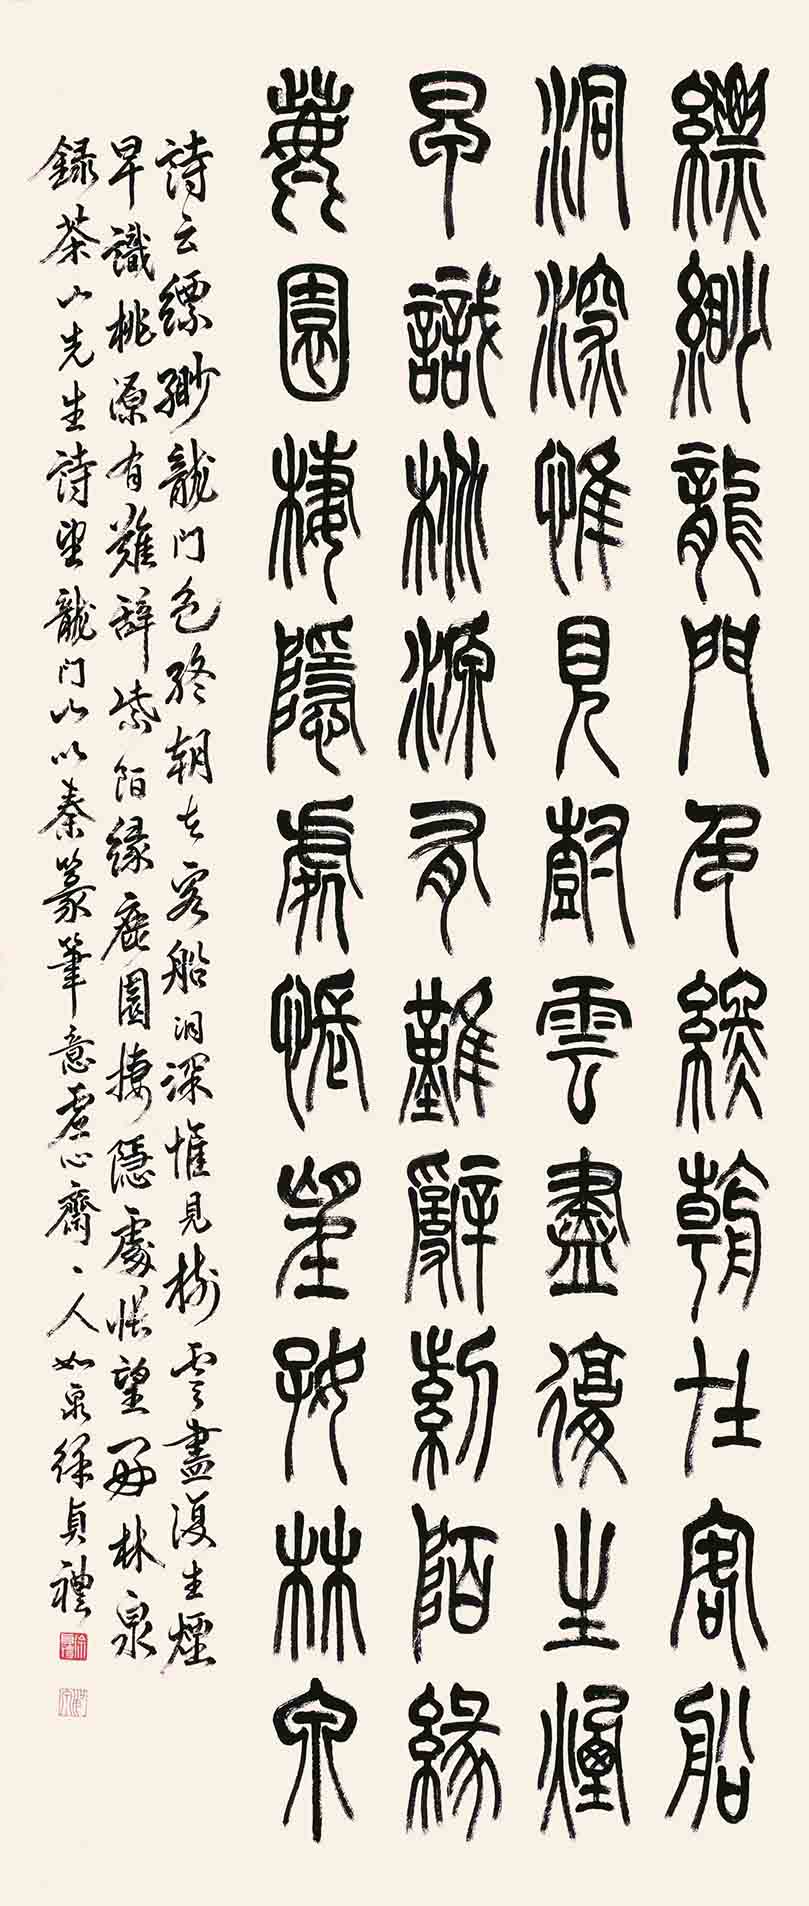 縹緲龍門色終朝在客船
洞深惟見樹雲盡復生煙
早識桃源有難辭紫陌緣
鹿園棲隱處悵望好林泉
詩云縹緲龍門色終朝在客船洞深惟見樹雲盡復生煙
早識桃源有難辭紫陌緣鹿園棲隱處悵望好林泉
錄茶山先生詩望龍門山以秦篆筆意虛心齋主人如泉徐貞禮